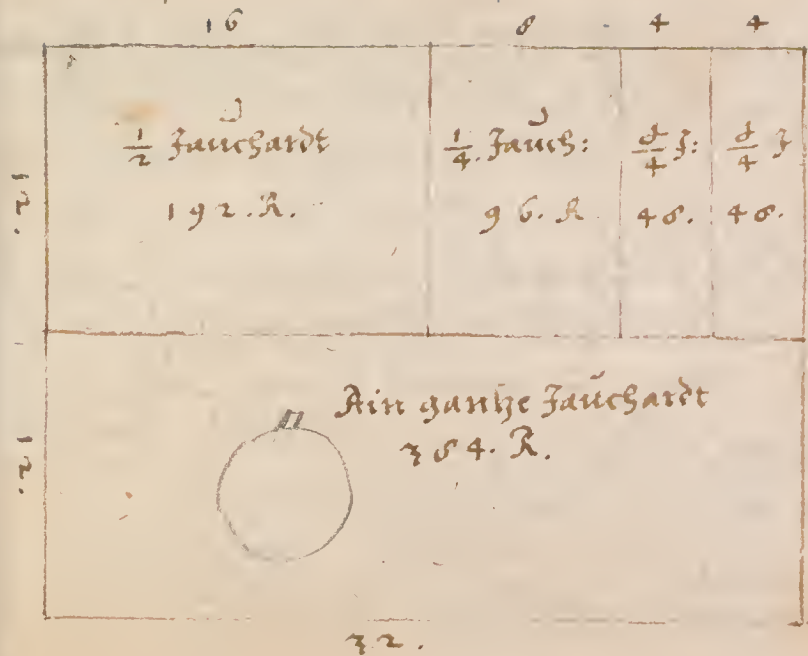 16 8 4 4
12.
½ Jauchardt
192. R.
¼. Jauch:
96. R
J:
48.
J
48.
12.
Ain gantze Jauchardt
384. R.
32.